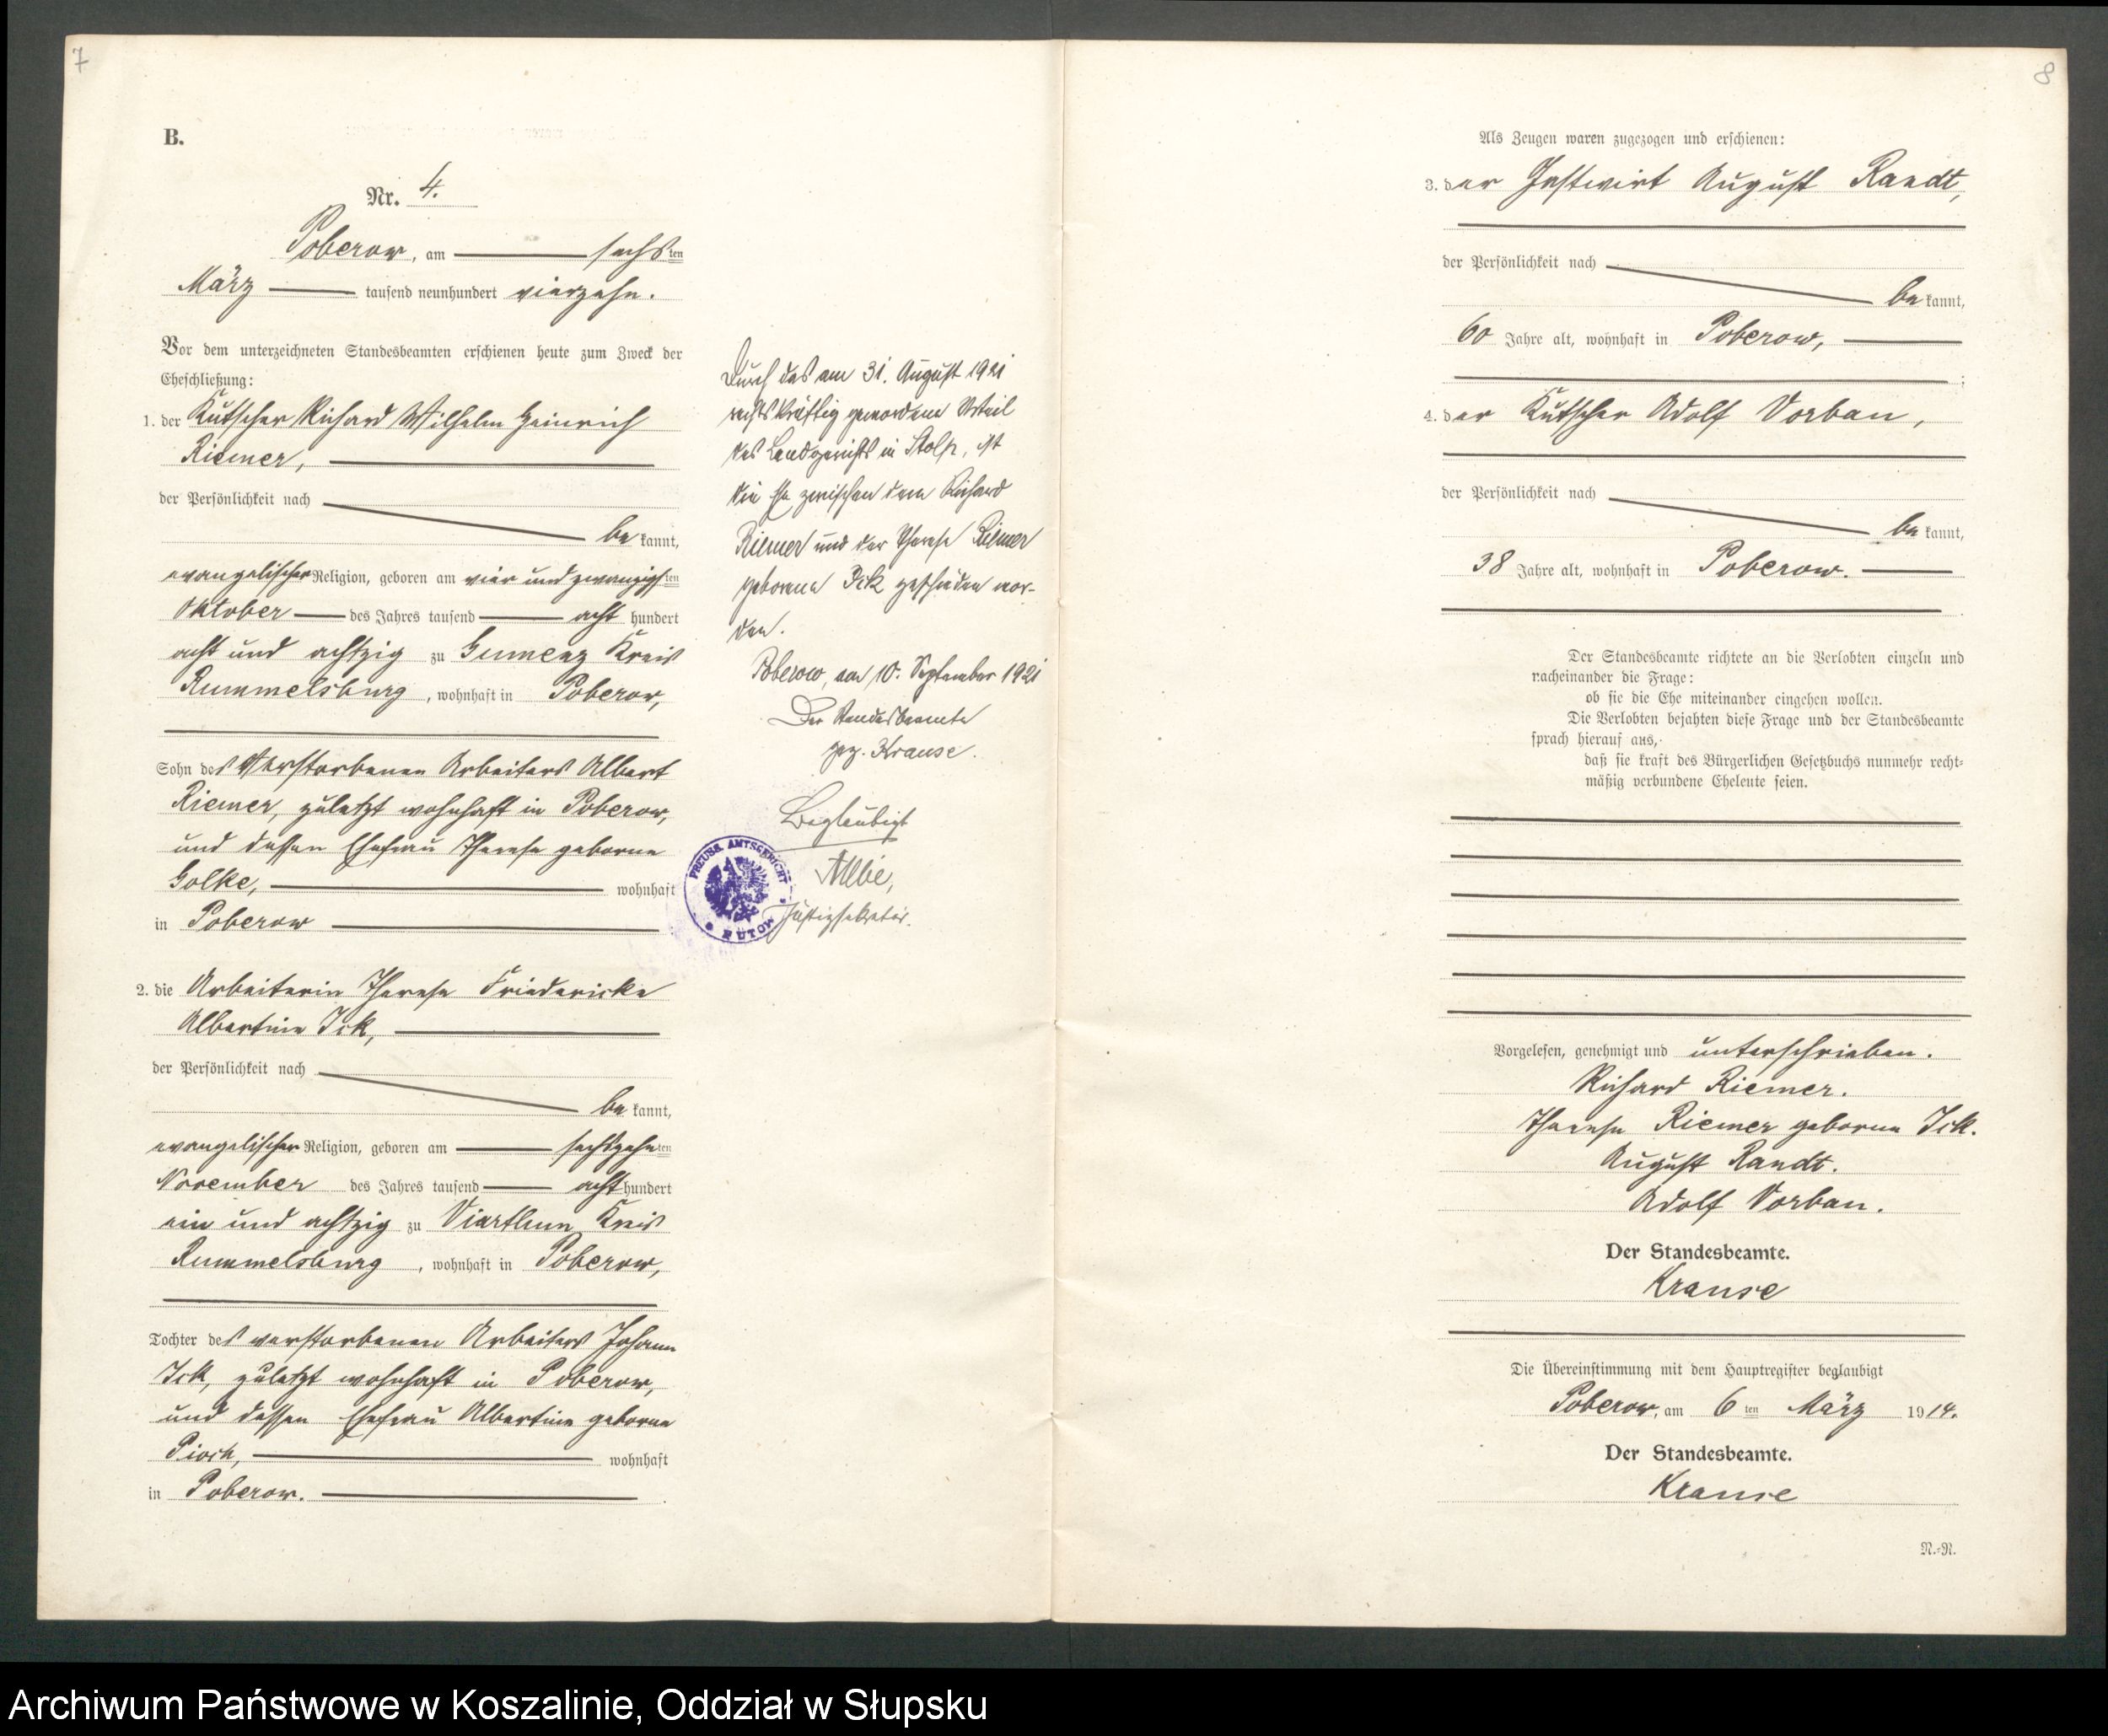 7
B.
Nr. 4.
Poberow, am sechsten
März tausend neunhundert vierzehn.
Vor dem unterzeichneten Standesbeamten erschienen heute zum Zweck der
Eheschließung:
1. der Kutscher Richard Wilhelm Heinrich
Riemer,
der Persönlichkeit nach
bekannt,
evangelischer Religion, geboren am vier und zwanzigsten
Oktober des Jahres tausend acht hundert
acht und achtzig zu Gumenz Kreis
Rummelsburg, wohnhaft in Poberow,
Sohn des verstorbenen Arbeiters Albert
Riemer, zuletzt wohnhaft in Poberow,
und dessen Ehefrau Therese geborne
Golke, wohnhaft
in Poberow
2. die Arbeiterin Therese Friedericke
Albertine Ick,
der Persönlichkeit nach
bekannt,
evangelischer Religion, geboren am sechszehnten
November des Jahres tausend acht hundert
ein und achtzig zu Viartlum Kreis
Rummelsburg, wohnhaft in Poberow,
Tochter des verstorbenen Arbeiters Johann
Ick, zuletzt wohnhaft in Poberow,
und dessen Ehefrau Albertine geborne
Pioch, wohnhaft
in Poberow.
Durch das am 31. August 1921
rechtskräftig gewordene Urteil
des Landgerichts in Stolp, ist
die Ehe zwischen dem Richard
Riemer und der Therese Riemer
geborene Ick geschieden wor-
den.
Poberow, am 10. September 1921
Der Standesbeamte
gez. Krause.
Beglaubigt
Justizsekretär.
PREUSS. AMTSGERICHT
BÜTOW
8
Als Zeugen waren zugezogen und erschienen:
3. der Gastwirt August Randt,
der Persönlichkeit nach
bekannt,
60 Jahre alt, wohnhaft in Poberow,
;
4. der Kutscher Adolf Vorban,
der Persönlichkeit nach
bekannt,
38 Jahre alt, wohnhaft in Poberow.
Der Standesbeamte richtete an die Verlobten einzeln und
nacheinander die Frage:
ob sie die Ehe miteinander eingehen wollen.
Die Verlobten bejahten diese Frage und der Standesbeamte
sprach hierauf aus,
daß sie kraft des Bürgerlichen Gesetzbuchs nunmehr recht-
mäßig verbundene Eheleute seien.
Vorgelesen, genehmigt und unterschrieben.
Richard Riemer.
Therese Riemer geborne Ick.
August Randt.
Adolf Vorban.
Der Standesbeamte.
Krause
Die Übereinstimmung mit dem Hauptregister beglaubigt
Poberow, am 6ten März 1914.
Der Standesbeamte.
Krause
N.-R.
Archiwum Państwowe w Koszalinie, Oddział w Słupsku